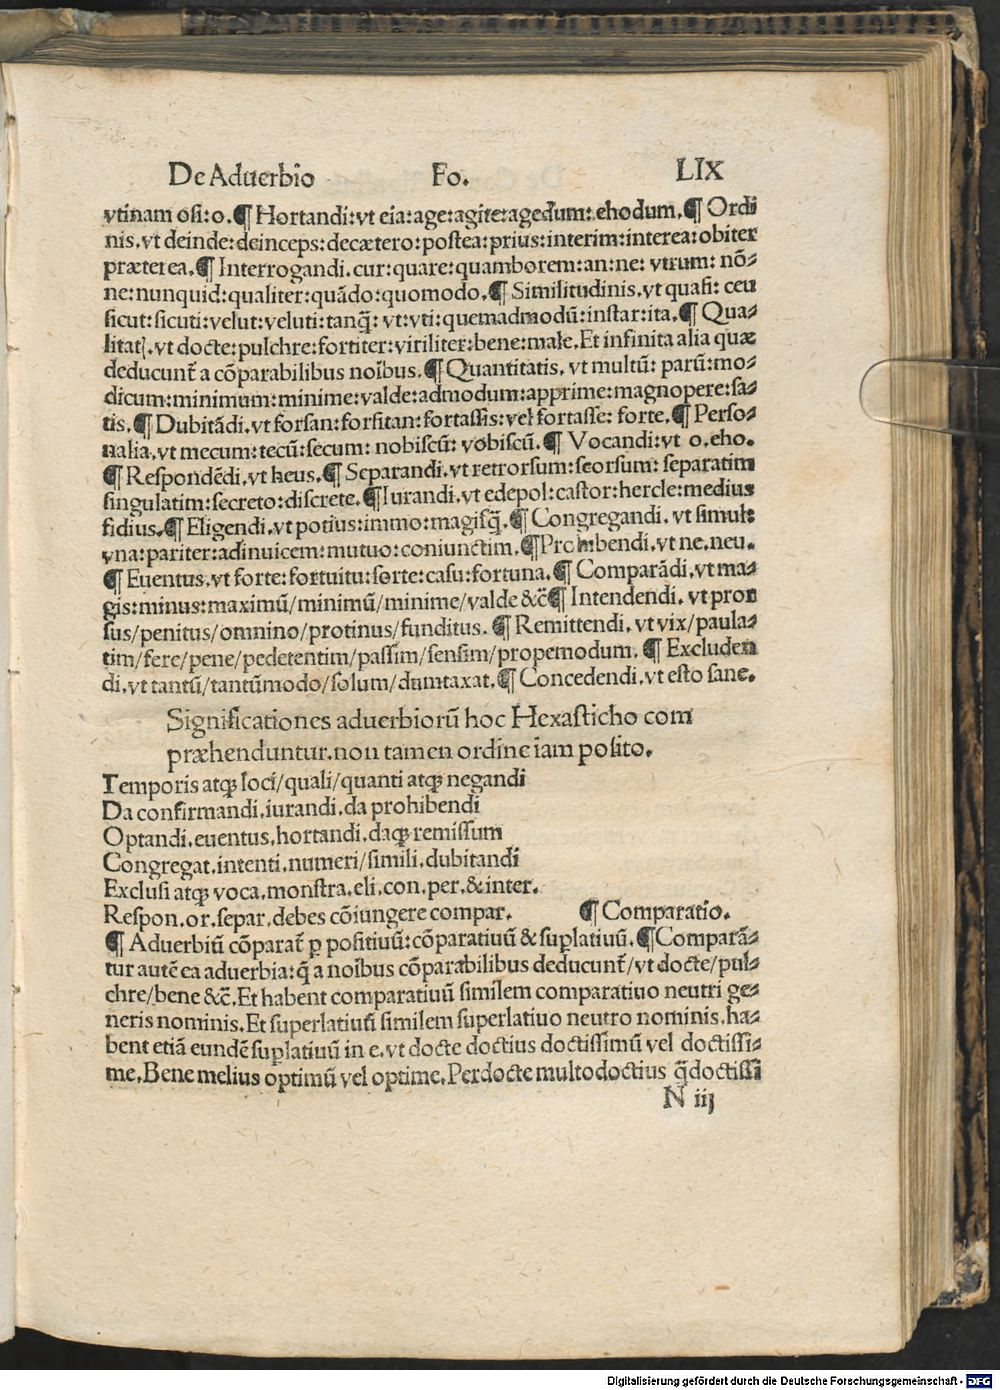 De Aduerbio Fo. LIX
vtinam osi:o.¶ Hortandi:vt eia:age:agite:agedum:ehodum.¶ Ordi
nis.vt deinde:deinceps:decætero:postea:prius:interim:interea:obiter
præterea.¶ Interrogandi.cur:quare:quamborem:an:ne: vtrum: nō⸗
ne:nunquid:qualiter:quādo:quomodo.¶ Similitudinis.vt quasi: ceu
sicut:sicuti:velut:veluti:tanq̄: vt:vti:quemadmodū:instar:ita.¶ Qua⸗
litatꝭ.vt docte:pulchre:fortiter:viriliter:bene:male.Et infinita alia quæ
deducunt̃ a cōparabilibus noībus.¶ Quantitatis. vt multū: parū:mo⸗
dicum:minimum:minime:valde:admodum:apprime:magnopere:sa⸗
tis.¶ Dubitādi.vt forsan:forsitan:fortassis:vel fortasse: forte.¶ Perso⸗
nalia.vt mecum:tecū:secum: nobiscū: vobiscū.¶ Vocandi:vt o.eho.
¶ Respondēdi.vt heus.¶ Separandi.vt retrorsum:seorsum: separatim
singulatim:secreto:discrete.¶ Iurandi.vt edepol:castor:hercle:medius
fidius.¶ Eligendi.vt potius:immo:magisq̄.¶ Congregandi. vt simul:
vna:pariter:adinuicem:mutuo:coniunctim.¶ Prohibendi.vt ne.neu.
¶ Euentus.vt forte:fortuitu:sorte:casu:fortuna.¶ Comparādi.vt ma⸗
gis:minus:maximū/minimū/minime/valde &c̄¶ Intendendi. vt pror
sus/penitus/omnino/protinus/funditus. ¶ Remittendi. vt vix/paula⸗
tim/fere/pene/pedetentim/passim/sensim/propemodum. ¶ Excluden
di.vt tantū/tantūmodo/solum/dumtaxat.¶ Concedendi.vt esto sane.
Significationes aduerbiorū hoc Hexasticho com
præhenduntur.non tamen ordine iam posito.
Temporis atqȝ loci/quali/quanti atqȝ negandi
Da confirmandi.iurandi.da prohibendi
Optandi.euentus.hortandi.daqȝ remissum
Congregat.intenti.numeri/simili.dubitandi
Exclusi atqȝ voca.monstra.eli.con.per.&inter.
Respon.or.separ.debes cōiungere compar. ¶ Comparatio.
¶ Aduerbiū cōparat̃ ꝑ positiuū:cōparatiuū & suꝑlatiuū.¶ Comparā⸗
tur autē ea aduerbia:q̄ a noībus cōparabilibus deducunt̃/vt docte/pul⸗
chre/bene &c̄.Et habent comparatiuū similem comparatiuo neutri ge⸗
neris nominis.Et superlatiuū similem superlatiuo neutro nominis.ha⸗
bent etiā eundē suꝑlatiuū in e.vt docte doctius doctissimū vel doctissi⸗
me.Bene melius optimū vel optime.Perdocte multodoctius q̄doctissi
N iij
Digitalisierung gefördert durch die Deutsche Forschungsgemeinschaft - DFG